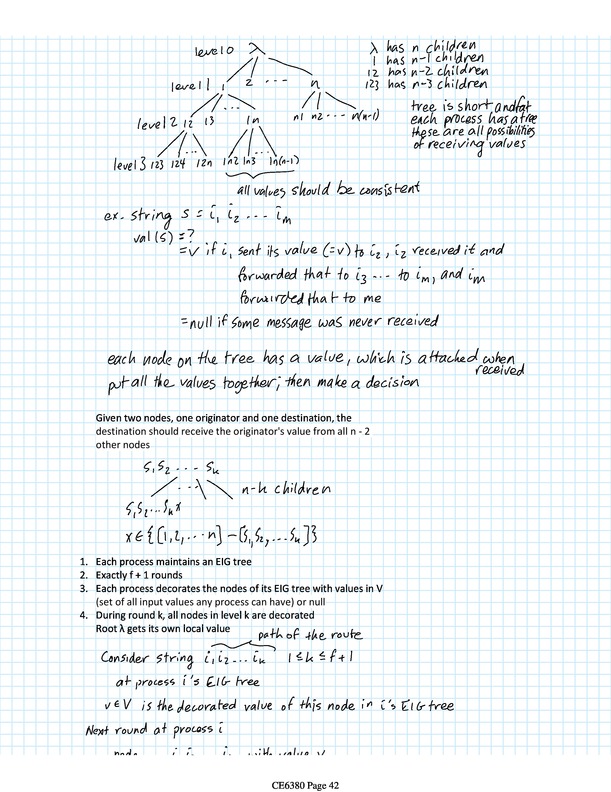 level 0 λ
λ has n children
1 has n-1 children
12 has n-2 children
123 has n-3 children
level 1 1 2 ... n
tree is short and fat
each process has a tree
these are all possibilities
of receiving values
level 2 12 13 ... 1n n1 n2 ... n(n-1)
level 3 123 124 ... 12n 1n2 1n3 ... 1n(n-1)
all values should be consistent
ex. string s = i₁ i₂ ... iₘ
val(s) = ?
= v if i₁ sent its value (=v) to i₂, i₂ received it and
forwarded that to i₃ ... to iₘ, and iₘ
forwarded that to me
= null if some message was never received
each node on the tree has a value, which is attached when
received
put all the values together; then make a decision
Given two nodes, one originator and one destination, the
destination should receive the originator's value from all n - 2
other nodes
s₁s₂ ... sₖ
... n-k children
s₁s₂...sₖx
x∈{{1,2,...n} - {s₁s₂,...sₖ}}
1. Each process maintains an EIG tree
2. Exactly f + 1 rounds
3. Each process decorates the nodes of its EIG tree with values in V
(set of all input values any process can have) or null
4. During round k, all nodes in level k are decorated
Root λ gets its own local value
path of the route
Consider string i₁i₂...iₖ 1≤k≤f+1
at process i's EIG tree
v∈V is the decorated value of this node in i's EIG tree
Next round at process i
CE6380 Page 42